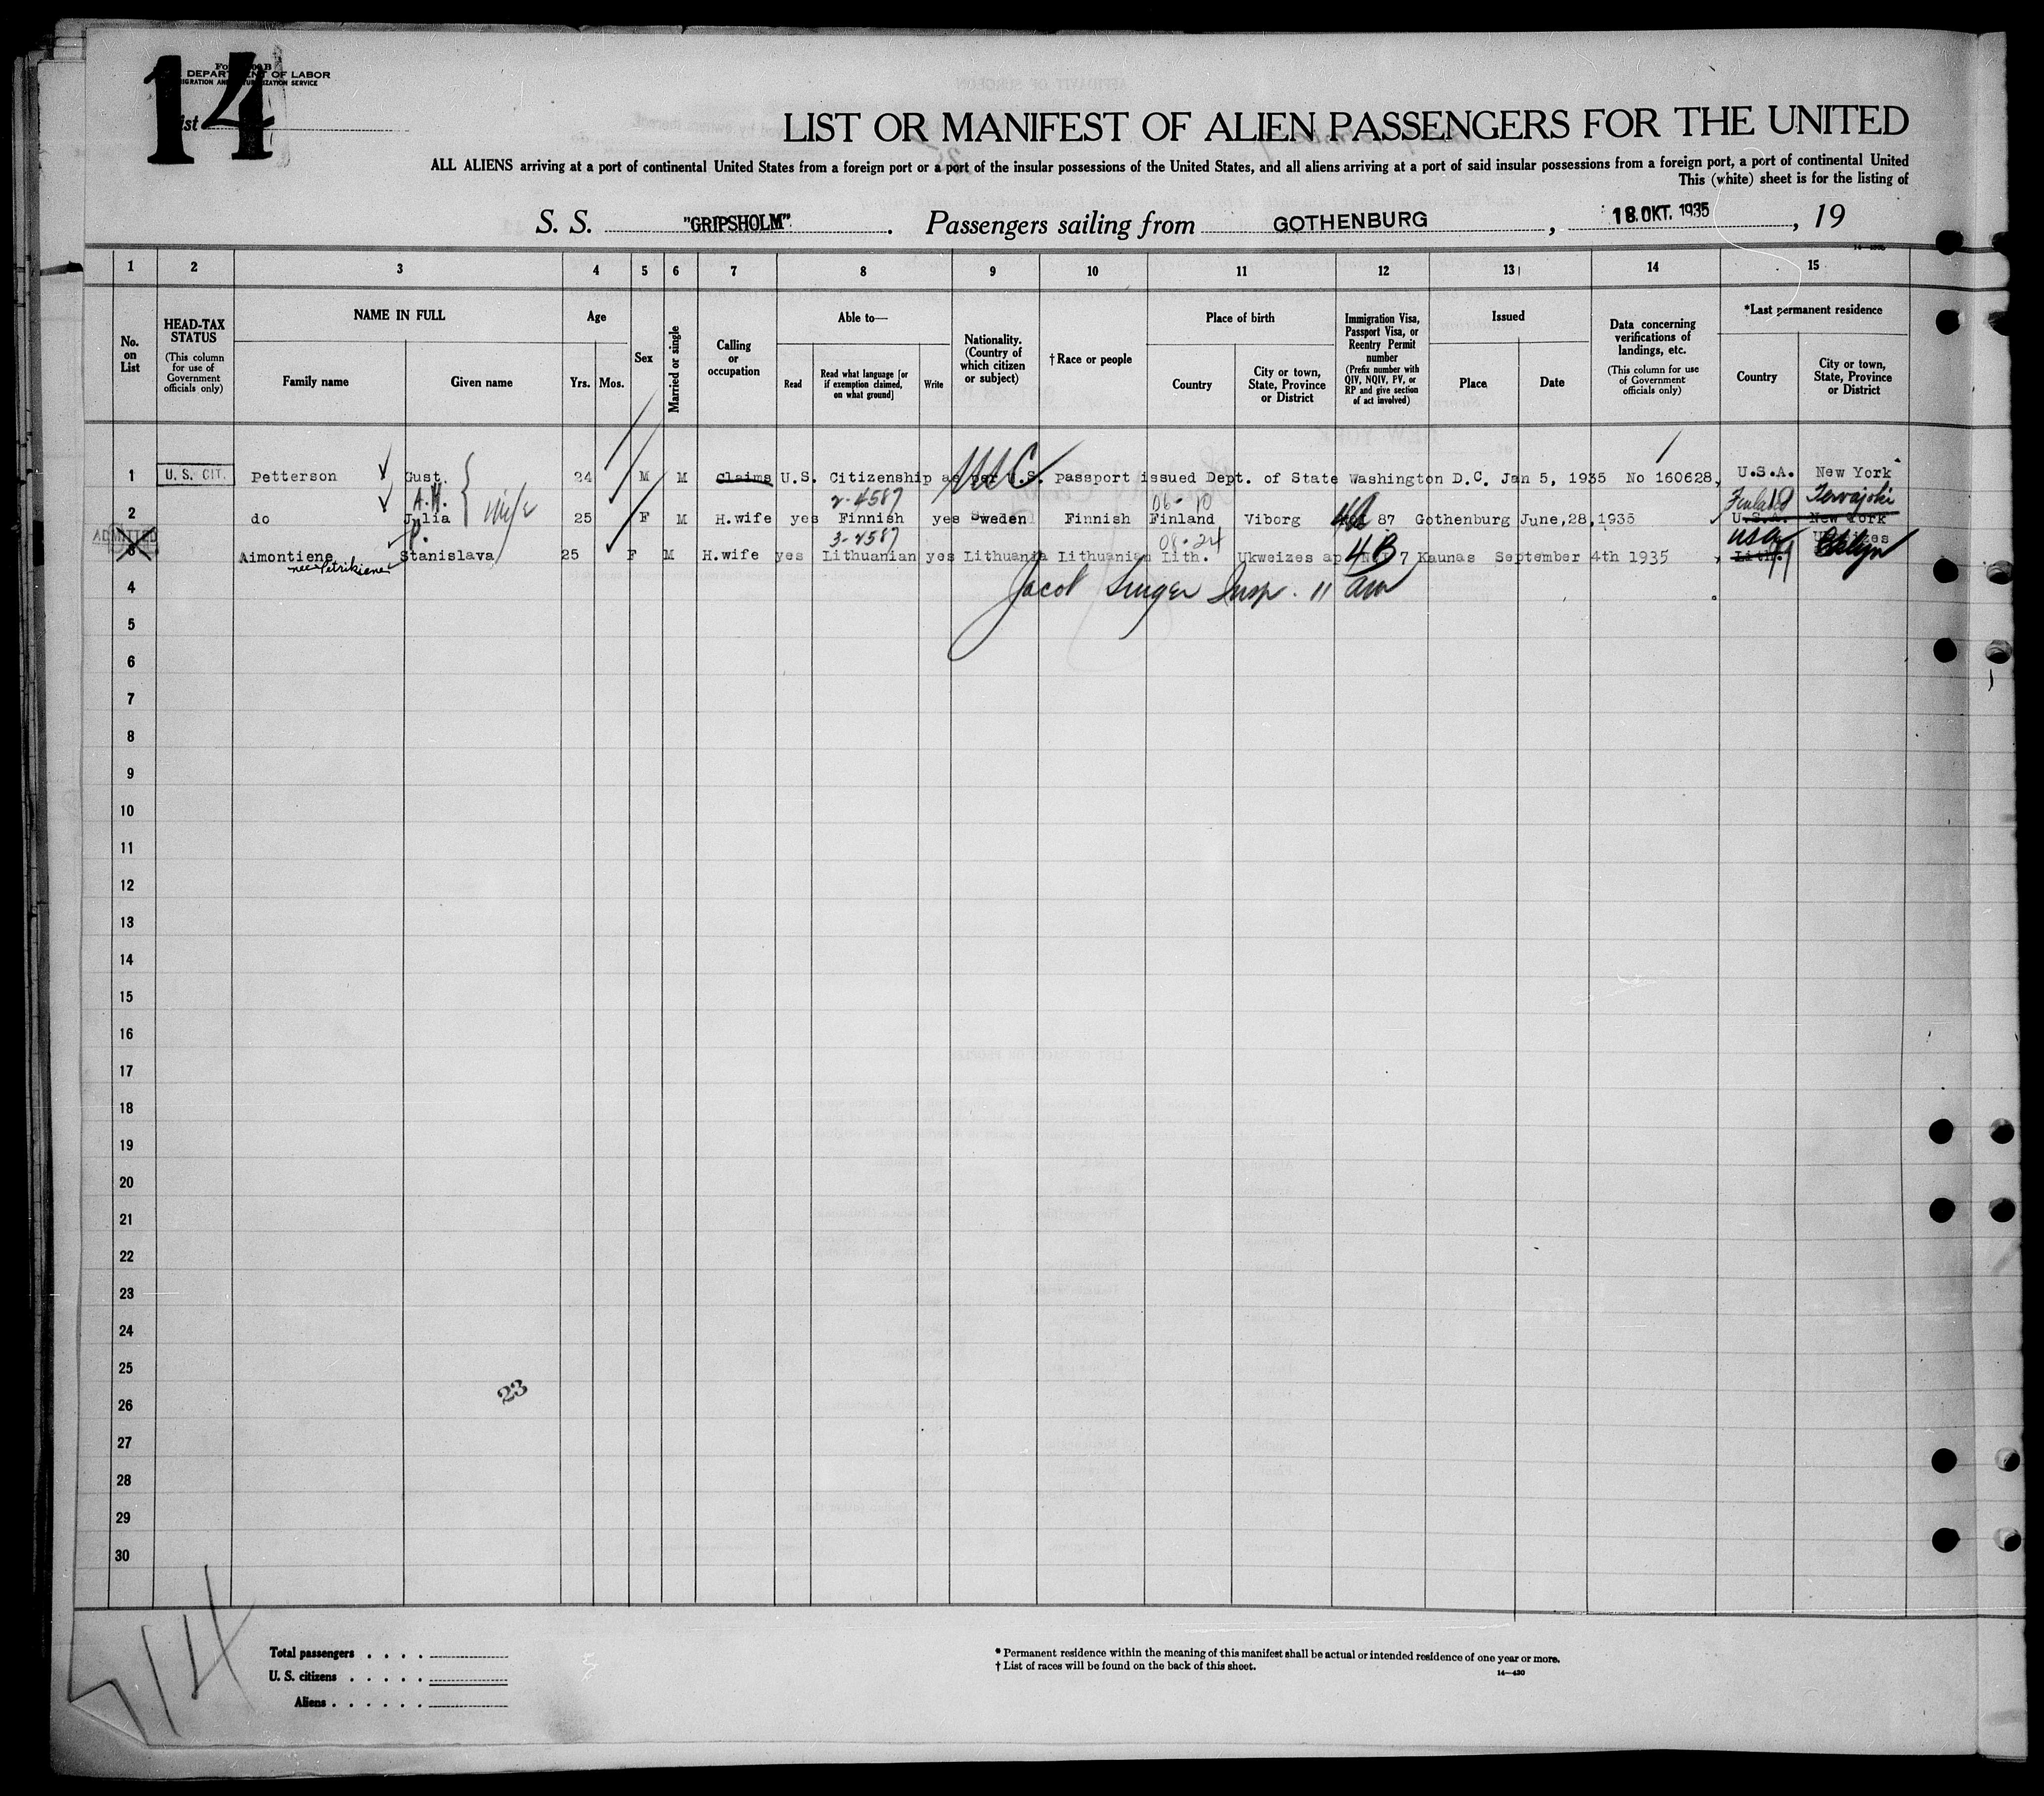 14
DEPARTMENT OF LABOR
LIST OR MANIFEST OF ALIEN PASSENGERS FOR THE UNITED
ALL ALIENS arriving at a port of continental United States from a foreign port or a port of the insular possessions of the United States, and all aliens arriving at a port of said insular possessions from a foreign port, a port of continental United
This (white) sheet is for the listing of
S. S. "GRIPSHOLM". Passengers sailing from GOTHENBURG, 18. OKT. 1935, 19
1 2 3 4 5 6 7 8 9 10 11 12 13 14 15
No. on List
HEAD-TAX STATUS
(This column for use of Government officials only)
NAME IN FULL
Family name Given name
Age
Yrs. Mos.
Sex
Married or single
Calling or occupation
Able to—
Read
Read what language [or if exemption claimed, on what ground]
Write
Nationality. (Country of which citizen or subject)
† Race or people
Place of birth
Country
City or town, State, Province or District
Immigration Visa, Passport Visa, or Reentry Permit number
(Prefix number with QIV, NQIV, PV, or RP and give section of act involved)
Issued
Place Date
Data concerning verifications of landings, etc.
(This column for use of Government officials only)
*Last permanent residence
Country
City or town, State, Province or District
1 U. S. CIT. Petterson Gust. 24 M M Claims U.S. Citizenship as per U.S. Passport issued Dept. of State Washington D.C. Jan 5, 1935 No 160628, U.S.A. New York
A.H. wife 2-4587 06-10 Finland
2 do Julia 25 F M H.wife yes Finnish yes Sweden Finnish Finland Viborg 87 Gothenburg June,28,1935 U.S.A. New York
ADMITTED P. 3-4587 08-24 USA
3 Aimontiene Stanislava 25 F M H.wife yes Lithuanian yes Lithuania Lithuanian Lith. Ukweizes ap 4B 7 Kaunas September 4th 1935 Lith. Bklyn
nee Petrikiene
4 Jacob Singer Insp. 11 am
5
6
7
8
9
10
11
12
13
14
15
16
17
18
19
20
21
22
23
24
25
26
27
28
29
30
23
14
Total passengers . . . .
U. S. citizens . . . . .
Aliens . . . . . .
* Permanent residence within the meaning of this manifest shall be actual or intended residence of one year or more.
† List of races will be found on the back of this sheet.
14—430